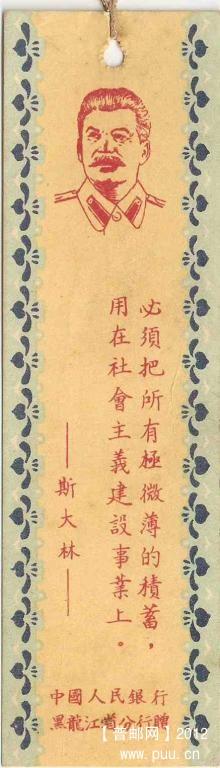 必須把所有極微薄的積蓄，
用在社會主義建設事業上。
——斯大林——
中國人民銀行
黑龍江省分行贈
【晋邮网】2012
www.puu.cn